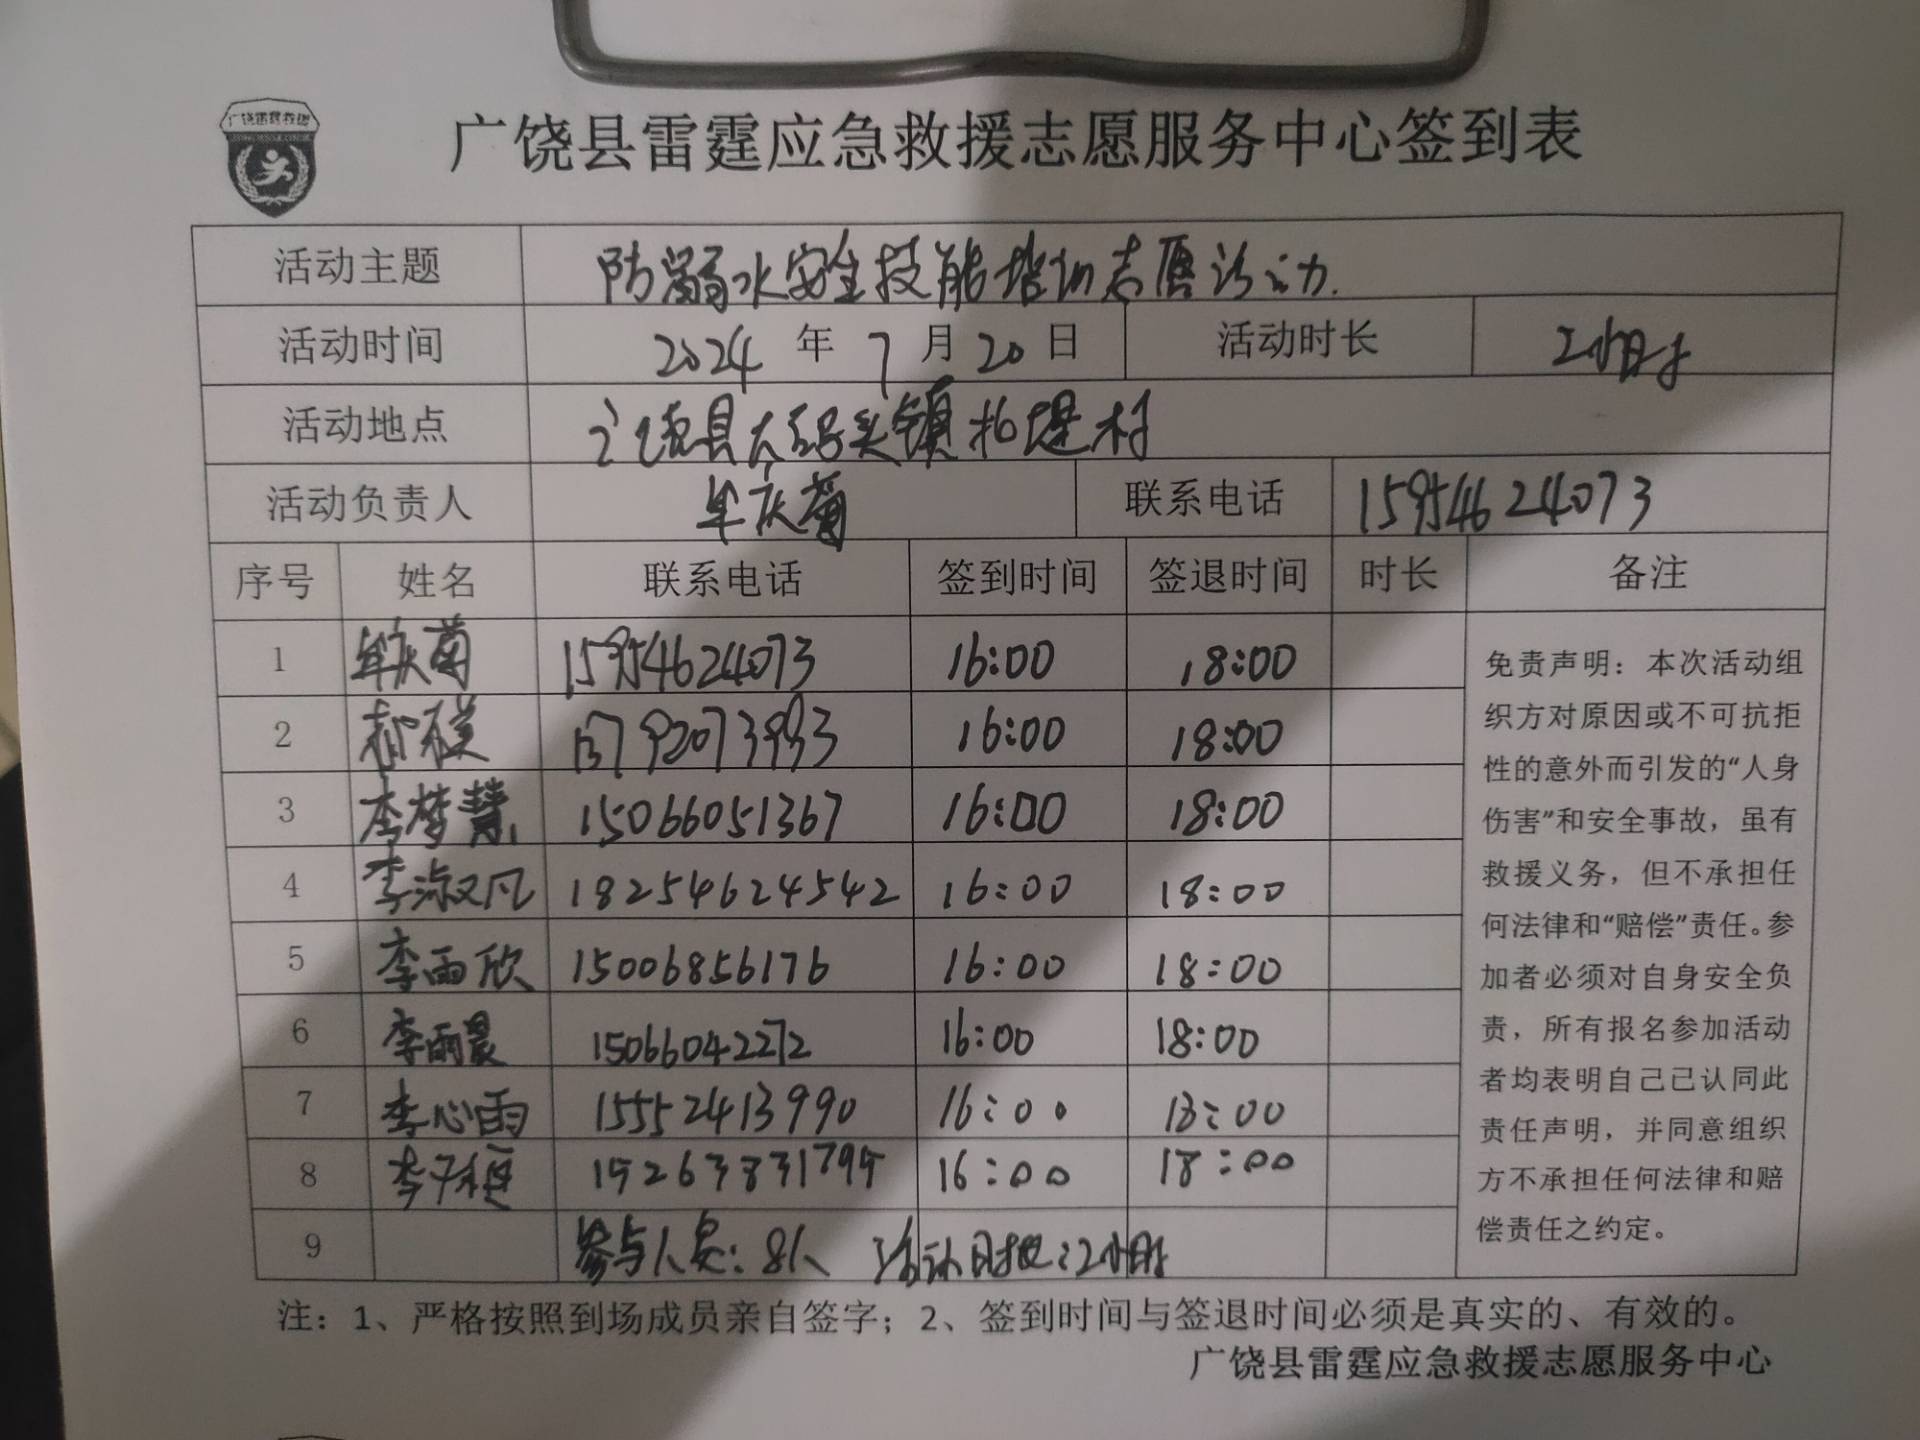 广饶雷霆救援
广饶县雷霆应急救援志愿服务中心签到表
活动主题 防溺水安全技能培训志愿活动.
活动时间 2024 年 7 月 20 日 活动时长 2小时
活动地点 广饶县大码头镇 堤村
活动负责人 牟庆菊 联系电话 15954624073
序号 姓名 联系电话 签到时间 签退时间 时长 备注
1 牟庆菊 15954624073 16:00 18:00
2 13792073993 16:00 18:00
3 李梦慧 15066051367 16:00 18:00
4 李淑凡 18254624542 16:00 18:00
5 李雨欣 15006856176 16:00 18:00
6 李雨晨 15066042272 16:00 18:00
7 李心雨 15552413990 16:00 18:00
8 李子 15263831795 16:00 18:00
9 参与人员:8人 活动时长:2小时
免责声明：本次活动组
织方对原因或不可抗拒
性的意外而引发的“人身
伤害”和安全事故，虽有
救援义务，但不承担任
何法律和“赔偿”责任。参
加者必须对自身安全负
责，所有报名参加活动
者均表明自己已认同此
责任声明，并同意组织
方不承担任何法律和赔
偿责任之约定。
注：1、严格按照到场成员亲自签字；2、签到时间与签退时间必须是真实的、有效的。
广饶县雷霆应急救援志愿服务中心